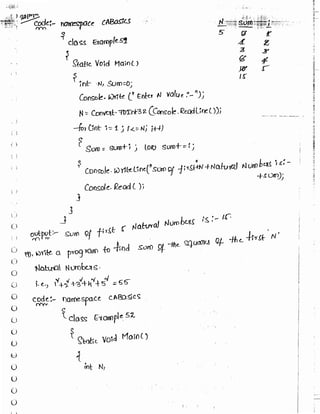 Code:- namespace CABasics
{
class Example51
{
Static Void Main()
{
int N, Sum=0;
Console.Write("Enter N Value :-");
N = Convert.ToInt32(Console.ReadLine());
for (int i = 1; i<=N; i++)
{
Sum = sum+i;
}
Console.WriteLine("Sum of first"+N+"Natural Numbers is:-"
+sum);
Console.Read();
}
}
}
N Sum i
5 0 1
1 2
3 3
6 4
10 5
15
output:- Sum of first 5 Natural Numbers is:- 15
Write a program to find sum of the squares of the first 'N'
Natural Numbers.
i.e., 1²+2²+3²+4²+5² = 55
code:- namespace CABasics
{
class Example52
{
Static Void Main()
{
int N,